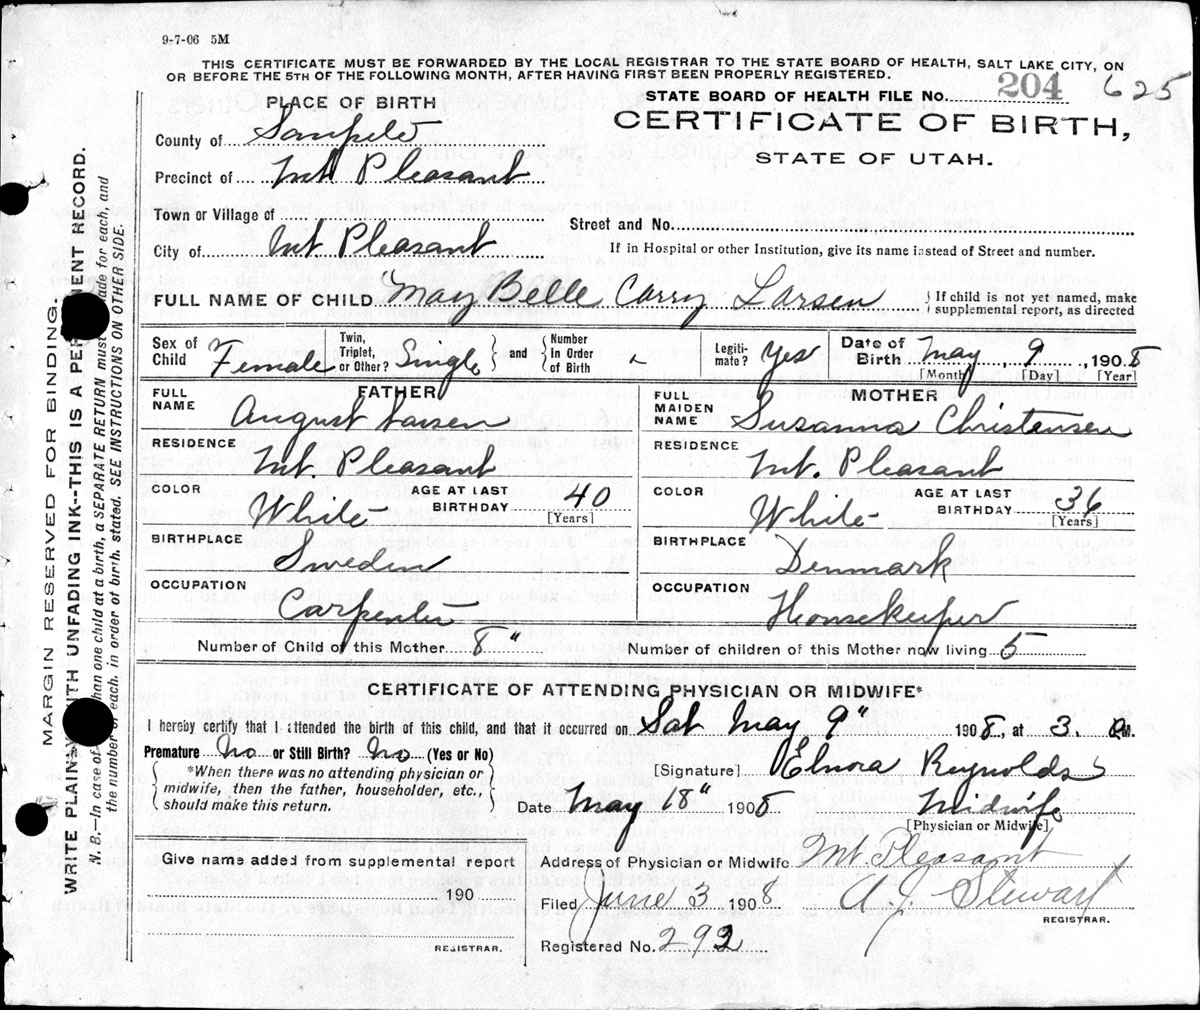 9-7-06 5M
THIS CERTIFICATE MUST BE FORWARDED BY THE LOCAL REGISTRAR TO THE STATE BOARD OF HEALTH, SALT LAKE CITY, ON
OR BEFORE THE 5TH OF THE FOLLOWING MONTH, AFTER HAVING FIRST BEEN PROPERLY REGISTERED.
STATE BOARD OF HEALTH FILE No. 204 625
CERTIFICATE OF BIRTH,
STATE OF UTAH.
PLACE OF BIRTH
County of Sanpete
Precinct of Mt. Pleasant
Town or Village of
Street and No.
City of Mt Pleasant
If in Hospital or other Institution, give its name instead of Street and number.
FULL NAME OF CHILD "May Belle Carry Larsen
If child is not yet named, make
supplemental report, as directed
Sex of Child Female
Twin, Triplet, or Other? Single and Number In Order of Birth
Legitimate? Yes
Date of Birth May 9 1908
[Month] [Day] [Year]
FATHER
FULL NAME August Larsen
RESIDENCE Mt. Pleasant
COLOR White
AGE AT LAST BIRTHDAY 40 [Years]
BIRTHPLACE Sweden
OCCUPATION Carpenter
MOTHER
FULL MAIDEN NAME Susanna Christensen
RESIDENCE Mt. Pleasant
COLOR White
AGE AT LAST BIRTHDAY 36 [Years]
BIRTHPLACE Denmark
OCCUPATION Housekeeper
Number of Child of this Mother 8" Number of children of this Mother now living 5
CERTIFICATE OF ATTENDING PHYSICIAN OR MIDWIFE*
I hereby certify that I attended the birth of this child, and that it occurred on Sat May 9" 1908, at 3. M.
Premature No or Still Birth? No (Yes or No)
*When there was no attending physician or
midwife, then the father, householder, etc.,
should make this return.
[Signature] Elnora Reynolds
Date May 18" 1908 Midwife
[Physician or Midwife]
Give name added from supplemental report
190
REGISTRAR.
Address of Physician or Midwife Mt. Pleasant
Filed June 3 1908 A. J. Stewart
REGISTRAR.
Registered No. 292
MARGIN RESERVED FOR BINDING.
WRITE PLAINLY WITH UNFADING INK--THIS IS A PERMANENT RECORD.
N. B.—In case of than one child at a birth, a SEPARATE RETURN must made for each, and
the number of each, in order of birth, stated. SEE INSTRUCTIONS ON OTHER SIDE.